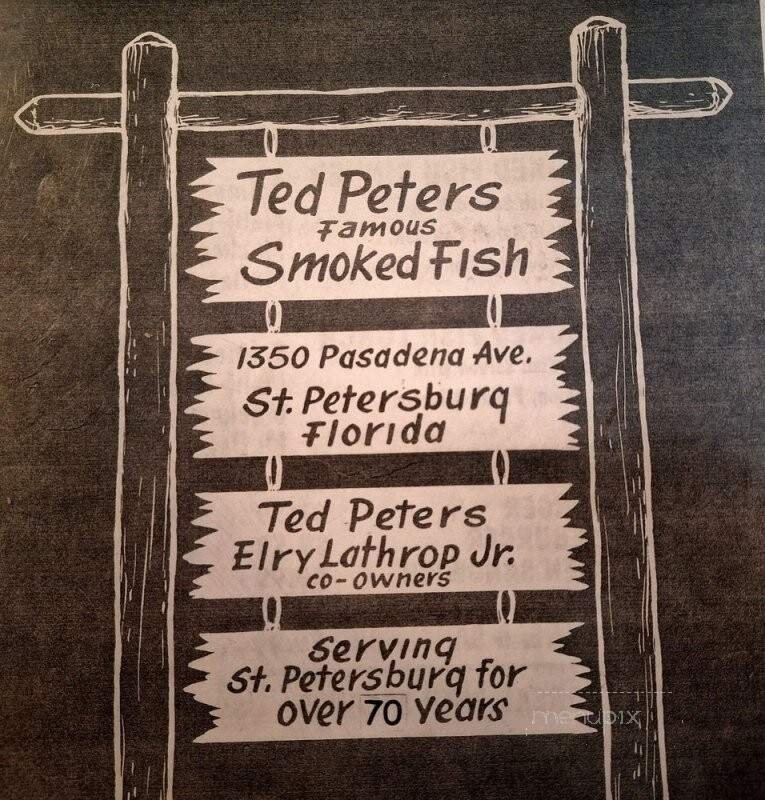 Ted Peters
Famous
Smoked Fish
1350 Pasadena Ave.
St. Petersburg
Florida
Ted Peters
Elry Lathrop Jr.
co-owners
Serving
St. Petersburg for
over 70 years
menupix